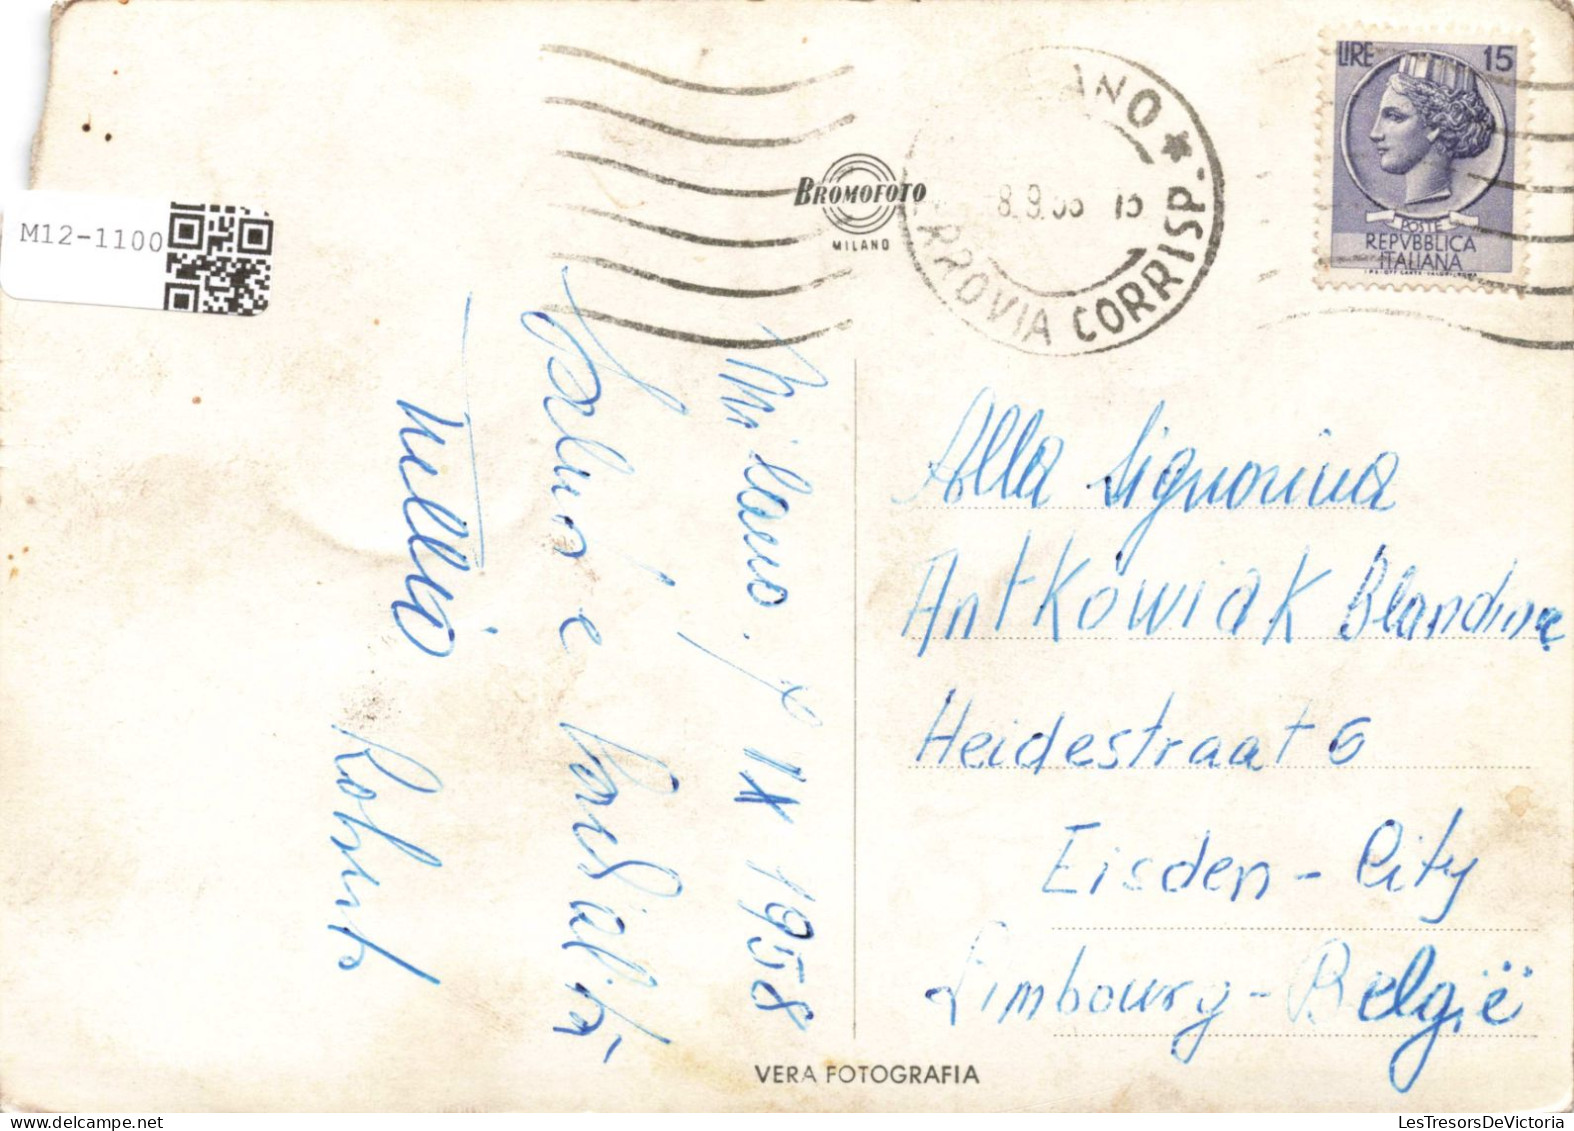 M12-1100
BROMOFOTO
MILANO
ANO * RROVIA CORRISP.
LIRE 15
POSTE
REPVBBLICA
ITALIANA
Milano. IX 1958
Salut e Cordialità
Tullio
Robert
Alla Signorina
Antkowiak Blandine
Heidestraat 6
Eisden - City
Limbourg - België
VERA FOTOGRAFIA
LesTresorsDeVictoria.com